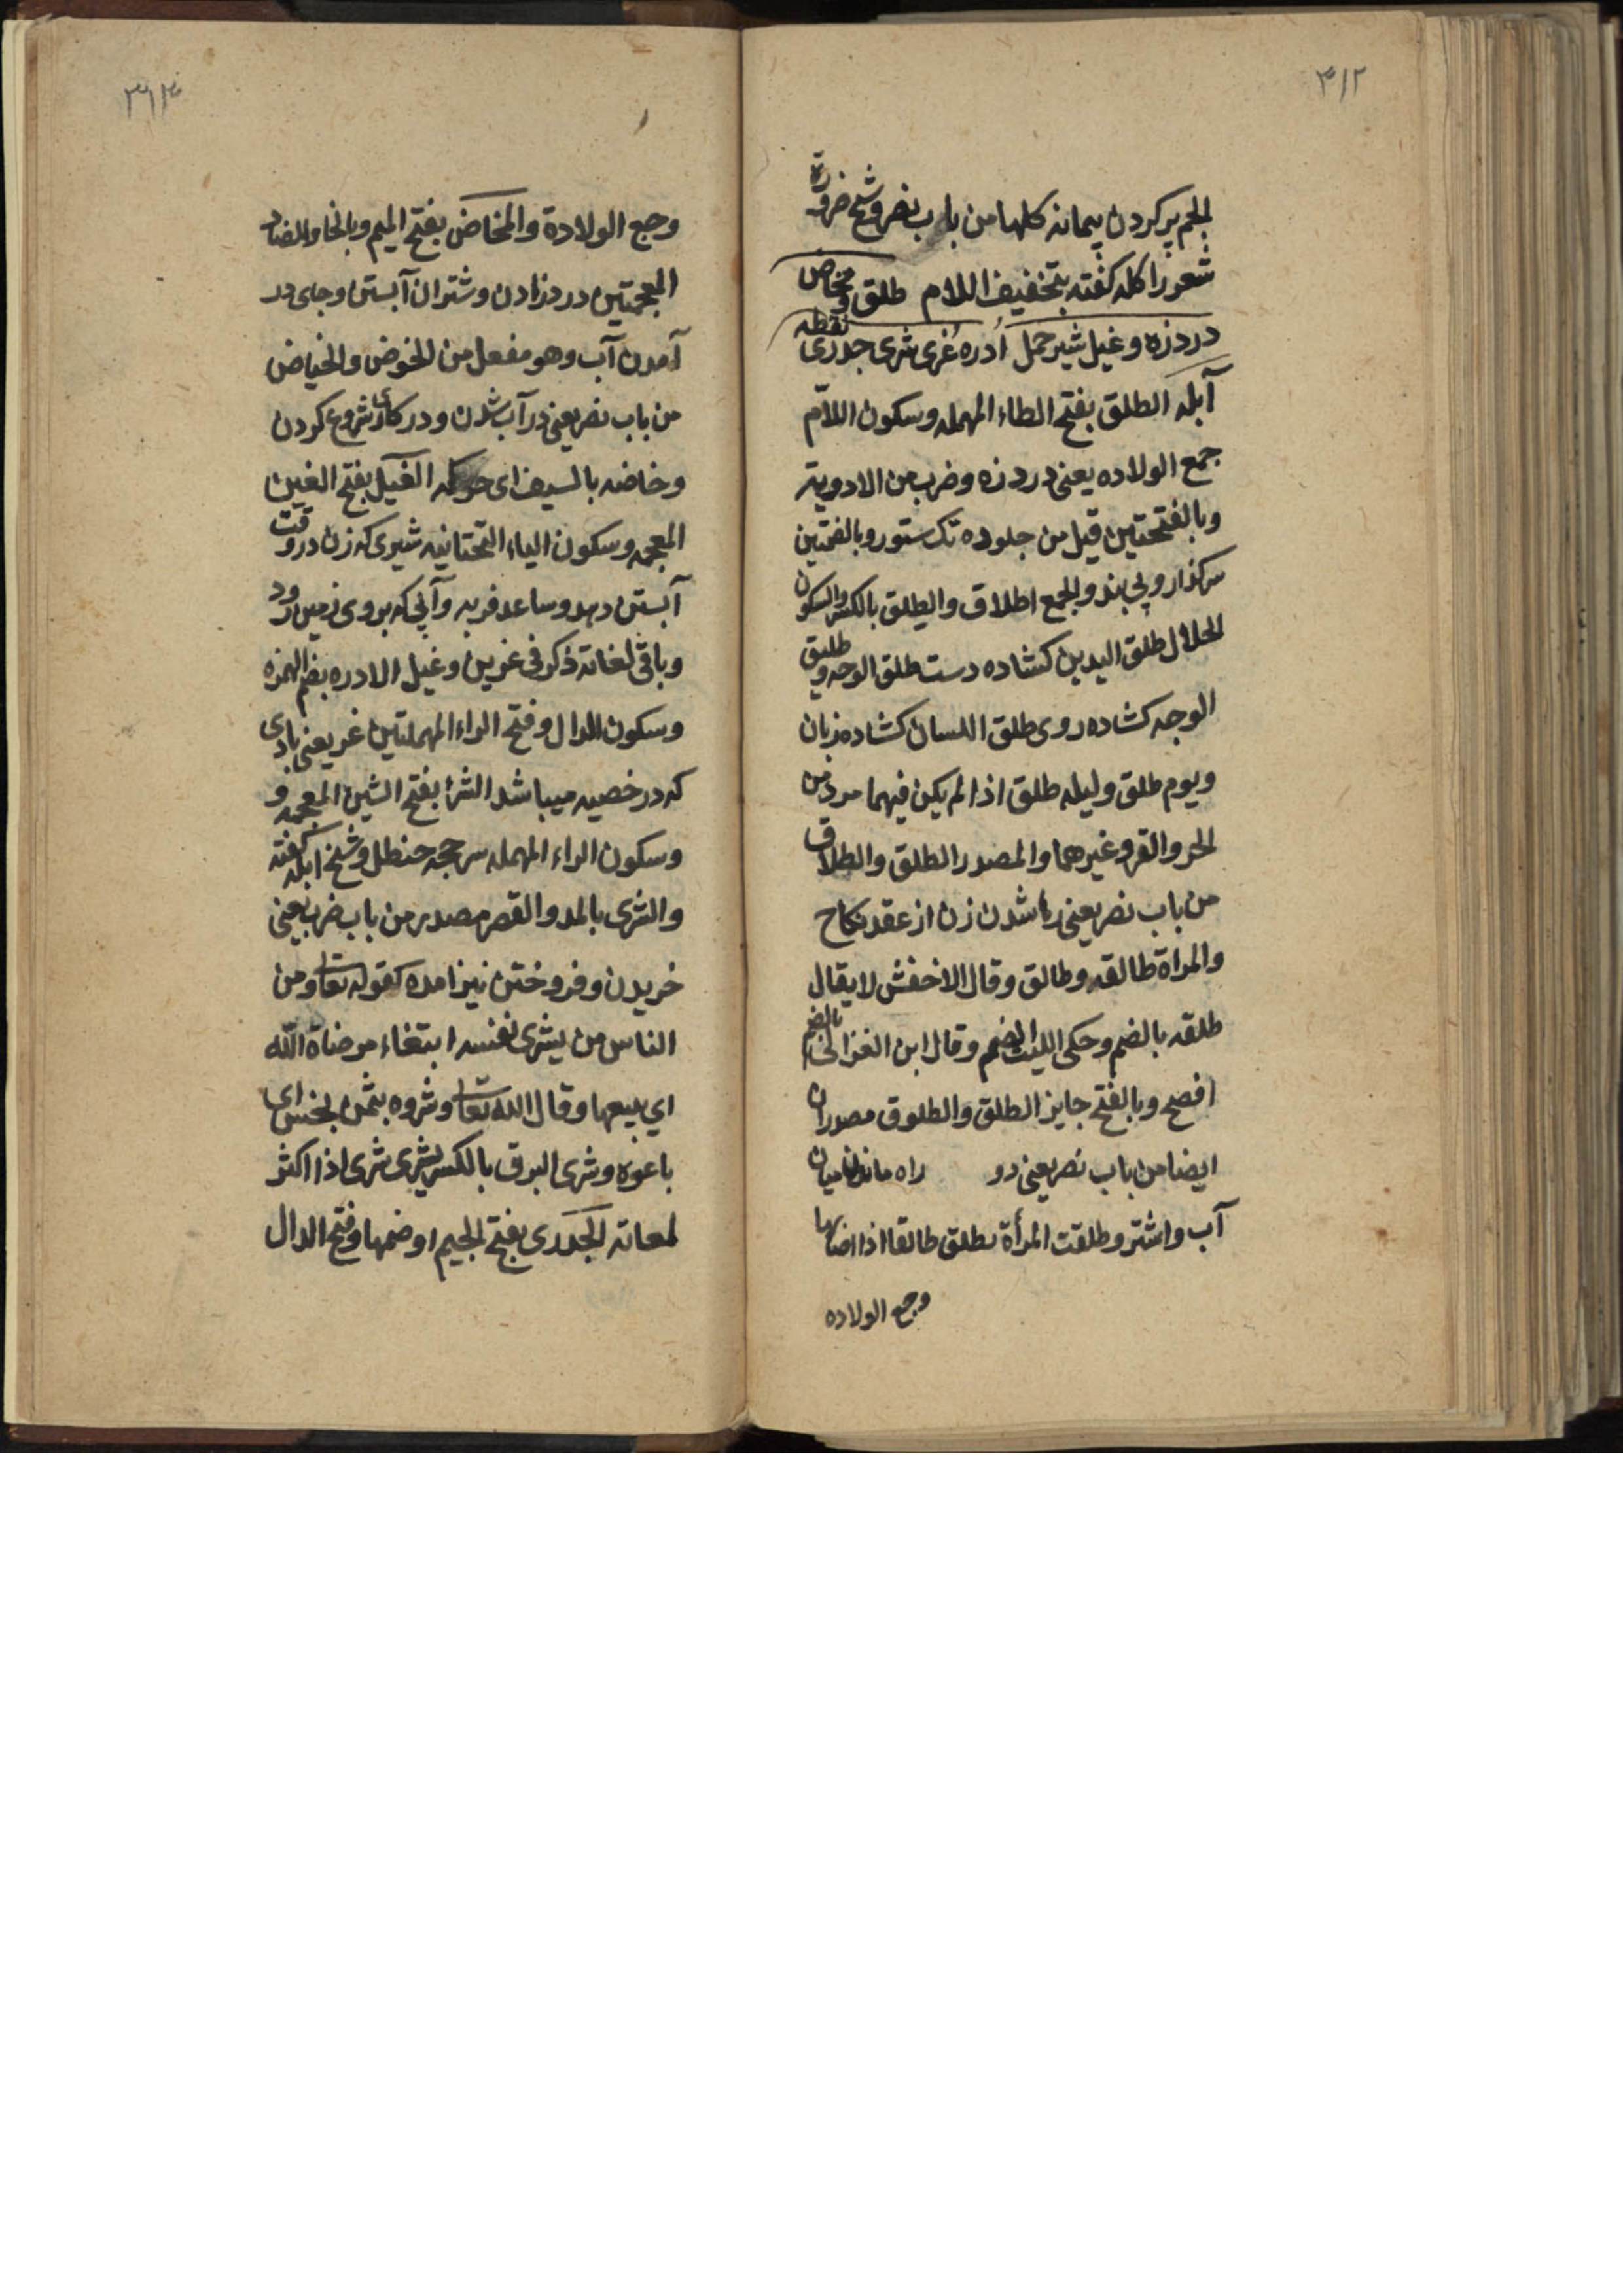 ۳۱۲
الجم پر کردن پیمانه کلها من باب نصر و شیخ ضرورة
شعر را کله گفته بتخفیف اللام طلق و مخاض
درد زه و غیل شیر حمل اُدره غری شری جدری نقطه
آبله الطلق بفتح الطاء المهمله و سکون اللام
جمع الولاده یعنی درد زه و ضرب من الادویة
و بالفتحتین قیل من جلود تک ستور و بالضمتین
بی بند و الجمع اطلاق و الطلق بالکسر و السکون
الحلال طلق الیدین کشاده دست طلق الوجه و طلیق
الوجه کشاده روی طلق اللسان کشاده زبان
و یوم طلق و لیله طلق اذا لم یکن فیهما من
الحر و القر و غیرهما و المصدر الطلق و الطلاق
من باب نصر یعنی رها شدن زن از عقد نکاح
و المراة طالقه و طالق و قال الاخفش لا یقال
طلقه بالضم و حکی اللیث الضم و قال ابن بالضم
افصح و بالفتح جایز الطلق و الطلوق مصدران
ایضا من باب نصر یعنی دو راه ماندن میان
آب و اشتر و طلقت المرأة تطلق طالقا اذا اصابها
وجع الولاده
۳۱۳
وجع الولادة و المخاض بفتح المیم و بالخا و الضاد
المعجمتین درد زادن و شتران آبستن و جای در
آمدن آب و هو مفعل من الخوض و الخیاض
من باب نصر یعنی در آب شدن و در کاری شروع کردن
و خاضه بالسیف ای حرکه الغیل بفتح الغین
المعجمه و سکون الیاء التحتانیه شیری که زن در وقت
آبستن دهد و ساعد فربه و آبی که بروی زمین رود
و باقی لغاته ذکر فی غرین و غیل الادره بضم الهمزه
و سکون الدال و فتح الراء المهملتین غر یعنی بادی
که در خصیه میباشد الشری بفتح الشین المعجمه و
و سکون الراء المهمله حنظل و شیخ ابله گفته
و الشری بالمد و القصر مصدر من باب ضرب یعنی
خریدن و فروختن نیز امده کقوله تعا و من
الناس من یشری نفسه ابتغاء مرضاة الله
ای یبیعها و قال الله تعا و شروه بثمن بخس ای
باعوه و شری البرق بالکسر یشری شری اذا اکثر
لمعانه الجَدَری بفتح الجیم او ضمها و فتح الدال